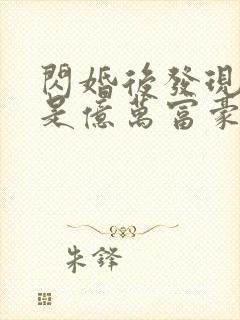 閃婚後發現
是億萬富豪
朱鋒